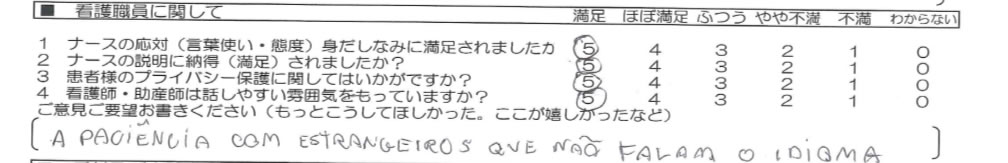 ■ 看護職員に関して 満足 ほぼ満足 ふつう やや不満 不満 わからない
1 ナースの応対（言葉使い・態度）身だしなみに満足されましたか 5 4 3 2 1 0
2 ナースの説明に納得（満足）されましたか？ 5 4 3 2 1 0
3 患者様のプライバシー保護に関してはいかがですか？ 5 4 3 2 1 0
4 看護師・助産師は話しやすい雰囲気をもっていますか？ 5 4 3 2 1 0
ご意見ご要望お書きください（もっとこうしてほしかった。ここが嬉しかったなど）
A PACIÊNCIA COM ESTRANGEIROS QUE NÃO FALAM O IDIOMA